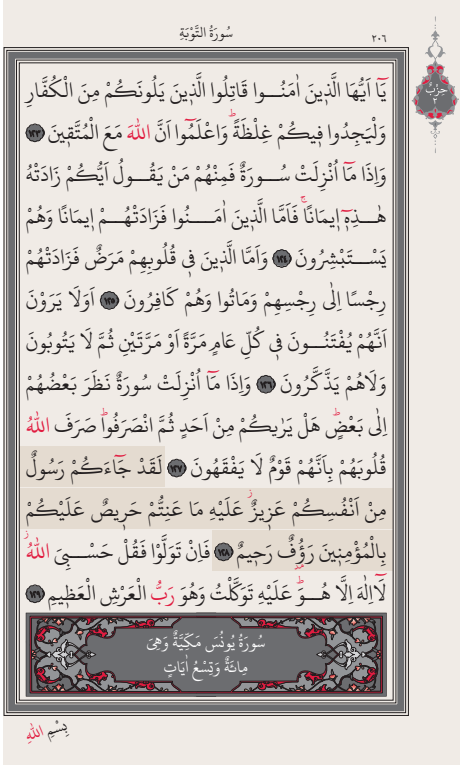 سُورَةُ التَّوْبَةِ
٢٠٦
حِزْبْ
٢
يَٓا اَيُّهَا الَّذ۪ينَ اٰمَنُوا قَاتِلُوا الَّذ۪ينَ يَلُونَكُمْ مِنَ الْكُفَّارِ
وَلْيَجِدُوا ف۪يكُمْ غِلْظَةًۜ وَاعْلَمُٓوا اَنَّ اللّٰهَ مَعَ الْمُتَّق۪ينَ ١٢٣
وَاِذَا مَٓا اُنْزِلَتْ سُورَةٌ فَمِنْهُمْ مَنْ يَقُولُ اَيُّكُمْ زَادَتْهُ
هٰذِه۪ٓ ا۪يمَانًاۚ فَاَمَّا الَّذ۪ينَ اٰمَنُوا فَزَادَتْهُمْ ا۪يمَانًا وَهُمْ
يَسْتَبْشِرُونَ ١٢٤ وَاَمَّا الَّذ۪ينَ ف۪ي قُلُوبِهِمْ مَرَضٌ فَزَادَتْهُمْ
رِجْسًا اِلٰى رِجْسِهِمْ وَمَاتُوا وَهُمْ كَافِرُونَ ١٢٥ اَوَلَا يَرَوْنَ
اَنَّهُمْ يُفْتَنُونَ ف۪ي كُلِّ عَامٍ مَرَّةً اَوْ مَرَّتَيْنِ ثُمَّ لَا يَتُوبُونَ
وَلَا هُمْ يَذَّكَّرُونَ ١٢٦ وَاِذَا مَٓا اُنْزِلَتْ سُورَةٌ نَظَرَ بَعْضُهُمْ
اِلٰى بَعْضٍۜ هَلْ يَرٰيكُمْ مِنْ اَحَدٍ ثُمَّ انْصَرَفُواۜ صَرَفَ اللّٰهُ
قُلُوبَهُمْ بِاَنَّهُمْ قَوْمٌ لَا يَفْقَهُونَ ١٢٧ لَقَدْ جَٓاءَكُمْ رَسُولٌ
مِنْ اَنْفُسِكُمْ عَز۪يزٌۘ عَلَيْهِ مَا عَنِتُّمْ حَر۪يصٌ عَلَيْكُمْ
بِالْمُؤْمِن۪ينَ رَؤُ۫فٌ رَح۪يمٌ ١٢٨ فَاِنْ تَوَلَّوْا فَقُلْ حَسْبِيَ اللّٰهُۘ
لَٓا اِلٰهَ اِلَّا هُوَۜ عَلَيْهِ تَوَكَّلْتُ وَهُوَ رَبُّ الْعَرْشِ الْعَظ۪يمِ ١٢٩
سُورَةُ يُونُسَ مَكِّيَّةٌ وَهِيَ
مِائَةٌ وَتِسْعُ اٰيَاتٍ
بِسْمِ اللّٰهِ